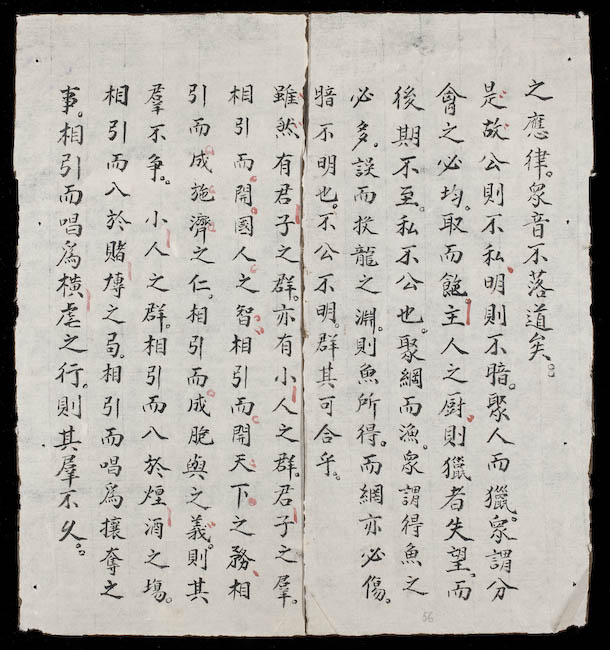 之應律。衆音不落道矣。
是故公則不私、明則不暗。聚人而獵。衆謂分
會之必均。取而飽主人之厨。則獵者失望。而
後期不至。私不公也。聚網而漁。衆謂得魚之
必多。誤而投龍之淵。則魚所得。而網亦必傷。
暗不明也。不公不明。群其可合乎。
雖然有君子之群。亦有小人之群。君子之羣。
相引而開國人之智。相引而開天下之務、相
引而成施濟之仁。相引而成胞與之義。則其
羣不争。小人之群。相引而入於煙酒之塲。
相引而入於賭塼之局。相引而唱爲攘奪之
事。相引而唱爲横虐之行。則其羣不久。
56